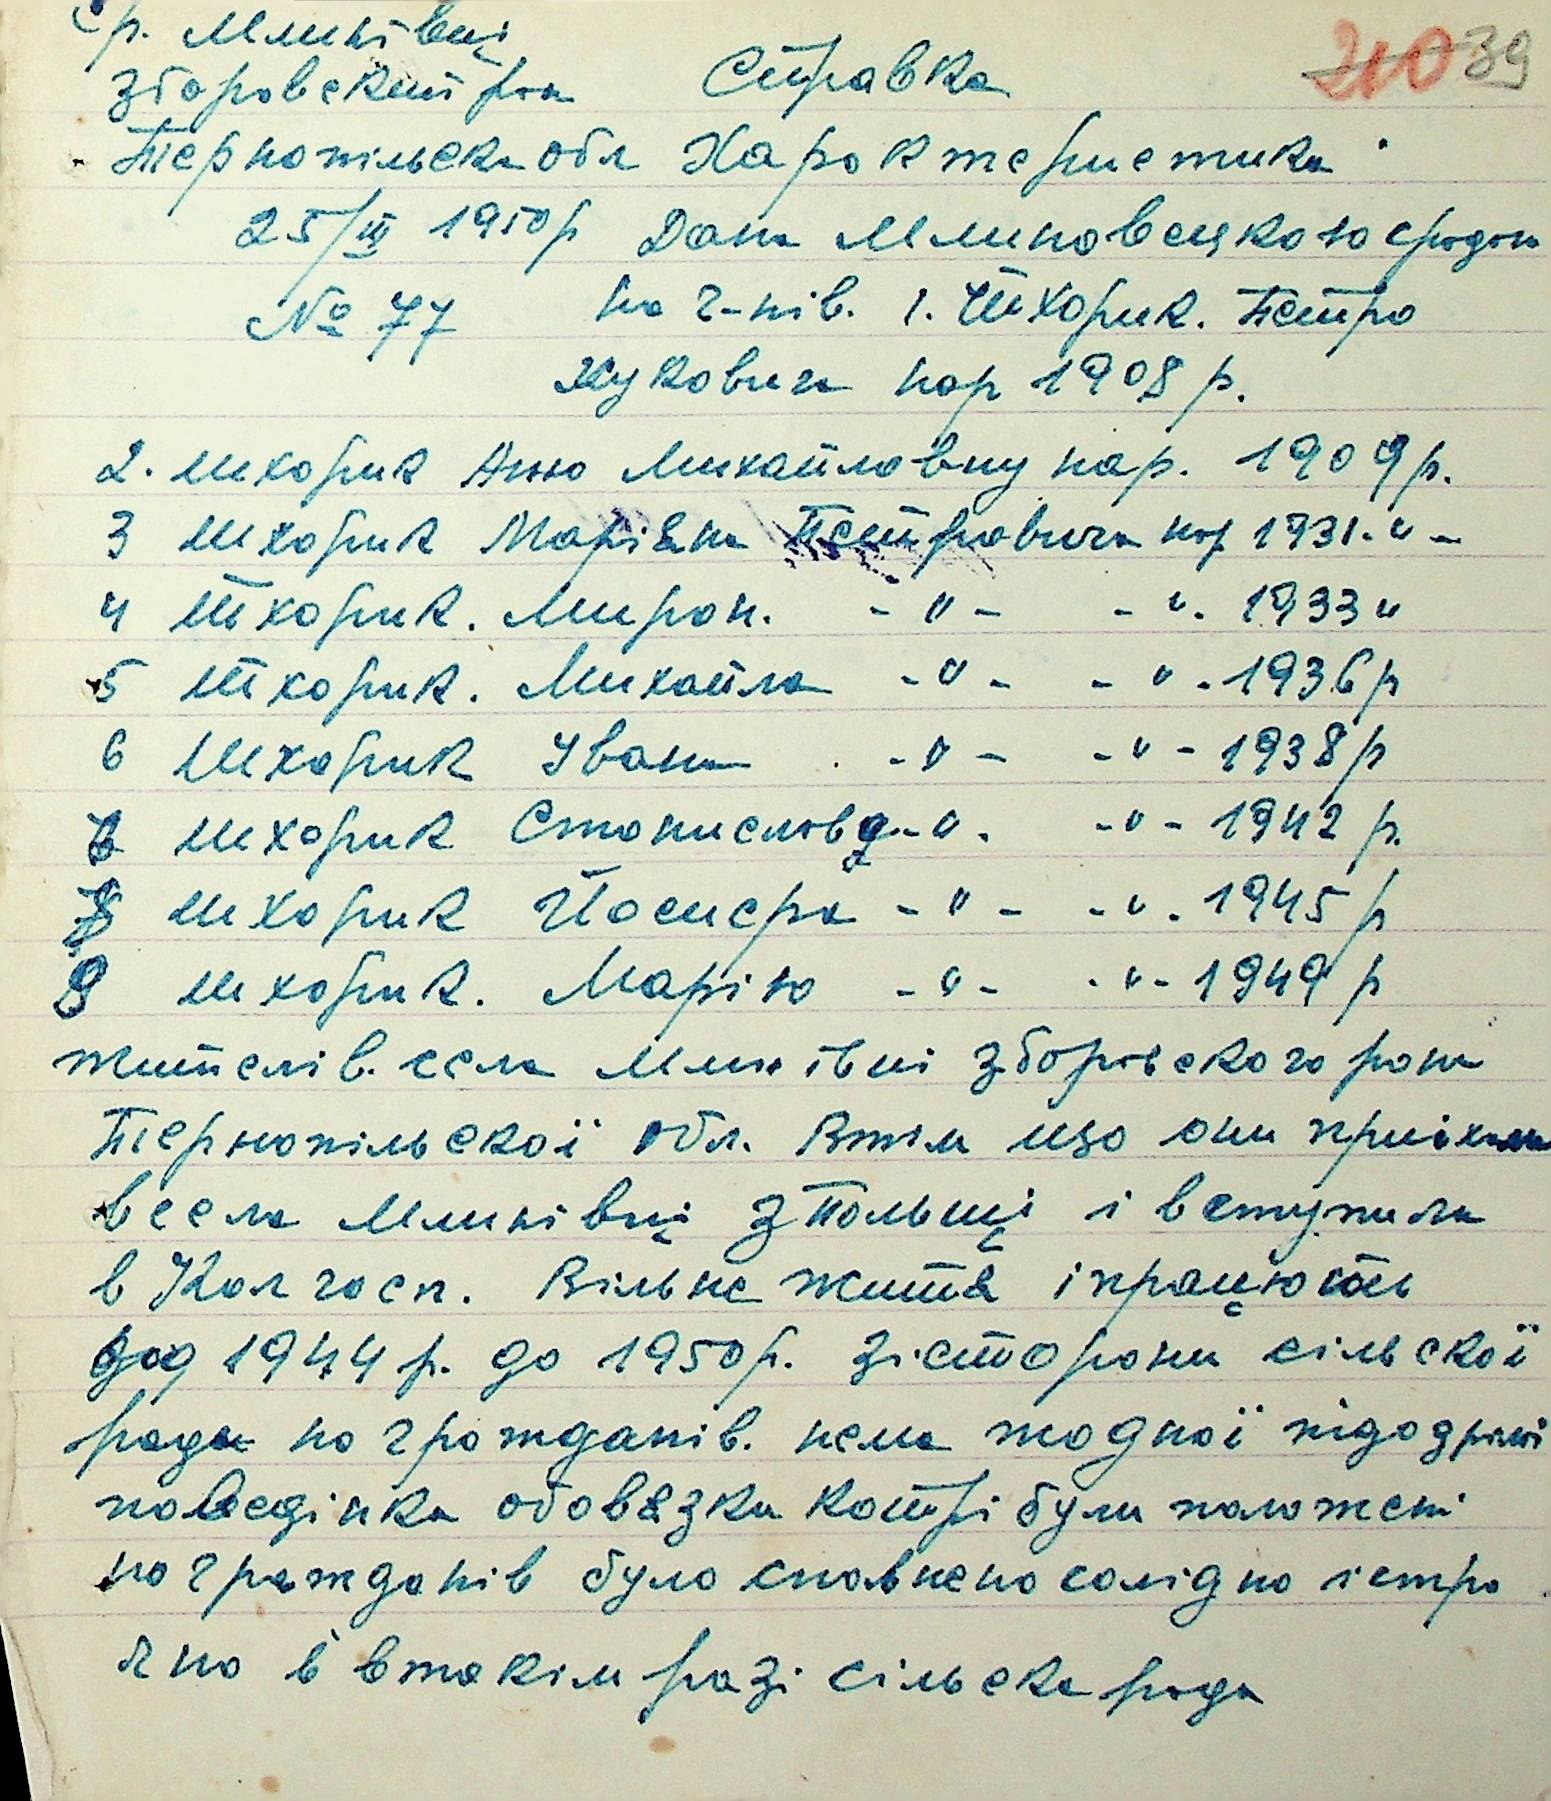 ср. Млинівці
39
Зборовский рон
Справка
Тернопільска обл Харовтеристика
25/III 1950р Дана Млиновецкою срадою
№ 77
на г-нів. 1. Шкорик. Петро
Жукович нар 1908 р.
2. Шкорик Анню Михайловну нар. 1909 р.
3 Шкорик Маріян Петровича нар 1931 - " -
4 Шкорик. Мирон. - " - - " - 1933 "
5 Шкорик. Михайла - " - - " - 1936 р
6 Шкорик Івана - " - - " - 1938 р
Шкорик Станислова - " - - " - 1942 р.
8 Шкорик Йосифа - " - - " - 1945 р
9 Шкорик. Марію - " - - " - 1949 р
жителів. села Млинівці зборівского рона
Тернопільскої обл. Втім що они приїхали
в села Млинівці з Польщі і вступили
в Колгосп. Вільне житя і працюють
від 1944 р. до 1950 р. зі сторони сільскої
ради на гражданів. нема жодної підозрілої
поведінка обовязки котрі були положені
на гражданів було сповнено солідно і стро
яно в втакім разі сільска рада